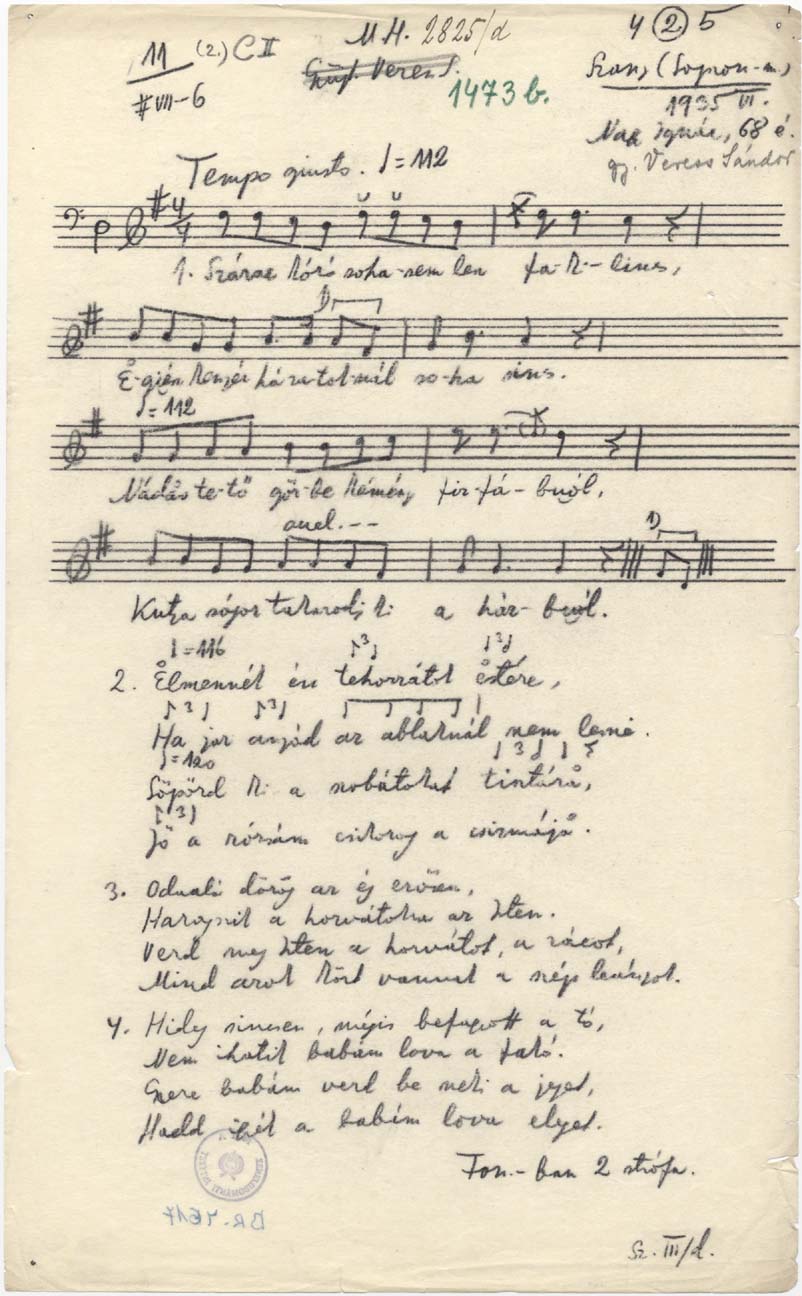 11 (2.) C II
M.H. 2825/d
4 (2) 5
#VII-6
Gyüjt. Veress S.
1473 b.
Szany (Sopron-m.)
1935 VI.
Nagy Ignác, 68 é.
gy. Veress Sándor
Tempo giusto. ♩=112
1. Száraz kóró soha-sem len
É-gién
so-ha sincs.
♩=112
Nádas te-tő gör-be kémény
auel.---
1)
Kutya sógor takarodj ki aház-buól.
♩=116
2. Elmennék én tehozzátok estére,
Ha jar anyád az ablaknál nem lesne.
♩=120
Söpörd ki a szobátokat
Jö a rózsám csikorog a csizmája.
3. Oduali dörög az ég erősen,
Haragszik a horvátokra az Isten.
Verd meg Isten a horvátot, a rácot,
Mind azok közt vannak a szép leányok.
4. Hideg sincsen, mégis befagyott a tó,
Nem ihatik babám lova a fakó.
Gyere babám verd be neki a jeget,
Hadd igyék a babám lova eleget.
Fon.-ban 2 strófa.
BR. 4617
Sz. III/d.